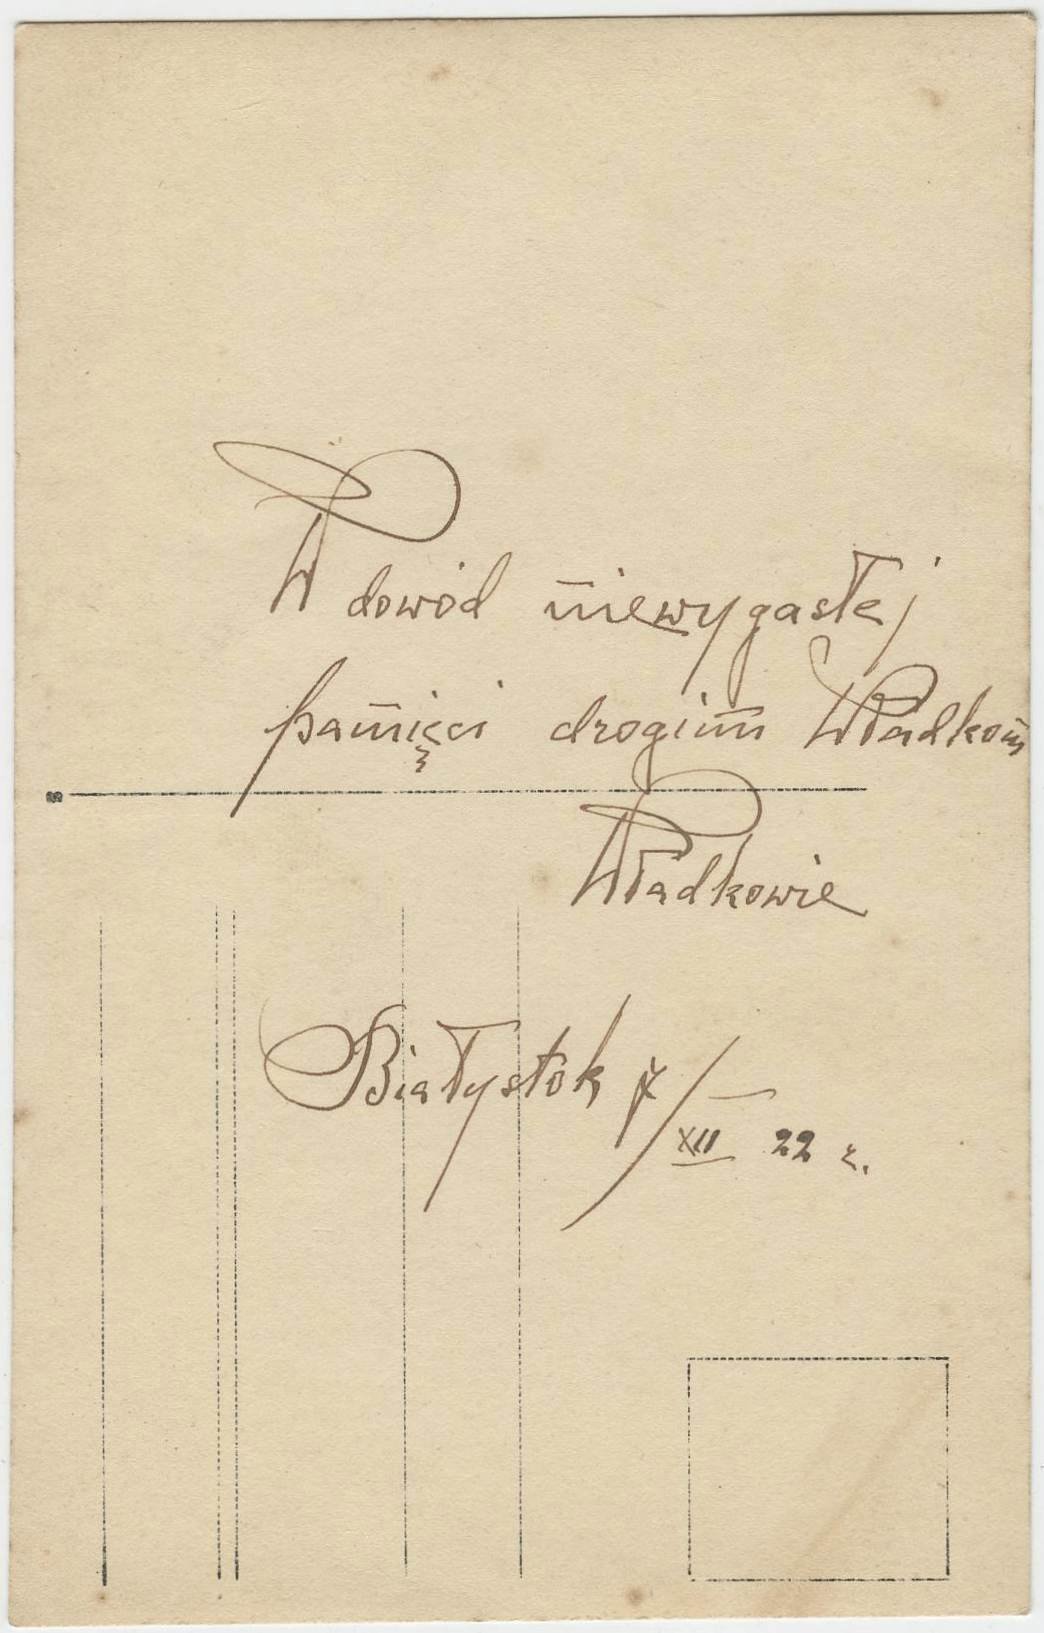 W dowód niewygasłej
pamięci drogim Władkom
Władkowie
Białystok 7/XII 22 r.